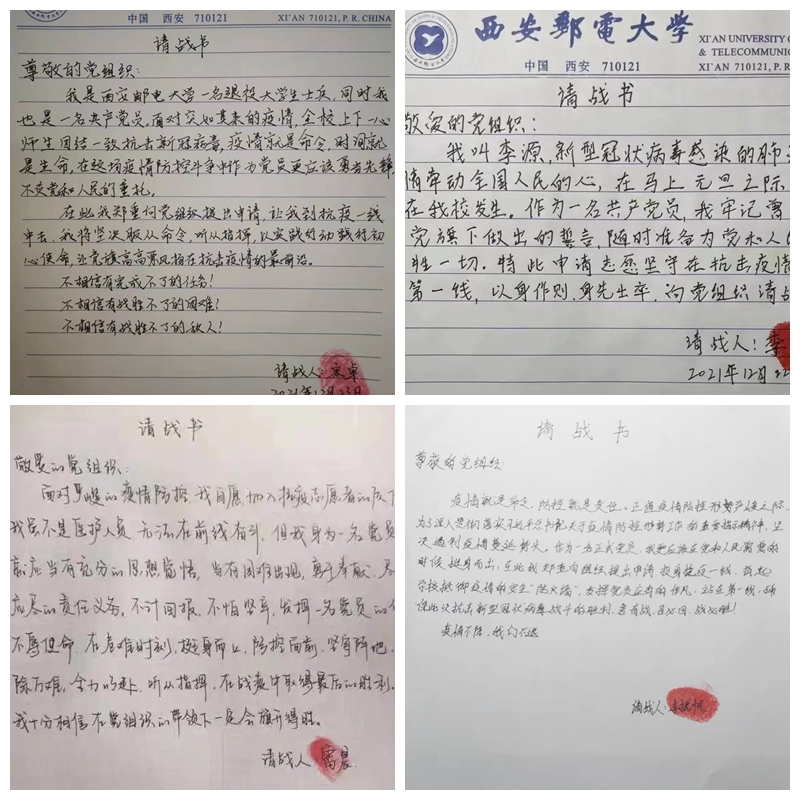 中国 西安 710121 XI'AN 710121, P. R. CHINA
请战书
尊敬的党组织:
我是西安邮电大学一名退役大学生士兵,同时我
也是一名共产党员,面对突如其来的疫情,全校上下一心
师生团结一致抗击新冠病毒,疫情就是命令,时间就
是生命,在这场疫情防控斗争中作为党员更应该勇当先锋,
不负党和人民的重托。
在此我郑重向党组织提出申请,让我到抗疫一线
冲击,我将坚决服从命令,听从指挥,以实践行动践行初
心使命,让党旗高高飘风扬在抗击疫情的最前沿。
不相信有完成不了的任务!
不相信有战胜不了的困难!
不相信有战胜不了的敌人!
请战人:卓
2021年12月23日
西安邮電大学 XI'AN UNIVERSITY O
& TELECOMMUNIC
中国 西安 710121 XI'AN 710121, P. R. C
请战书
敬爱的党组织:
我叫李源,新型冠状病毒感染的肺
情牵动全国人民的心,在马上元旦之际
在我校发生。作为一名共产党员,我牢记
党旗下做出的誓言,随时准备为党和人
牲一切。特此申请志愿坚守在抗击疫情
第一线,以身作则,身先士卒,向党组织请战
请战人:李
2021年12月22
请战书
敬爱的党组织:
面对严峻的疫情防控,我自愿加入抗疫志愿者的队
我虽不是医护人员,无法在前线奋斗,但我身为一名党员
就应当有充分的思想觉悟,当有困难出现,勇于奉献,尽
应尽的责任义务,不计回报,不怕坚辛,发挥一名党员的
不辱使命,在危难时刻,挺身而上,防控面前,坚守阵地,
除万难,全力以赴,听从指挥,在战疫中取得最后的胜利。
我十分相信在党组织的带领下一定会旗开得胜。
请战人 晨
请战书
尊敬的党组织:
疫情就是命令,防控就是责任。正值疫情防控形势严峻之际,
为了深入贯彻落实习近平总书记关于疫情防控形势工作的重要指示精神,坚
决遏制疫情蔓延势头。作为一名正式党员,我更应该在党和人民需要的
时候挺身而出,在此我郑重向组织提出申请,投身抗疫一线,筑起
学校抵御疫情的安全"防火墙",发挥党员应有的作用,站在第一线,确
保此次抗击新型冠状病毒战斗的胜利,若有战,召必回,战必胜!
疫情不除,我们不退
请战人: